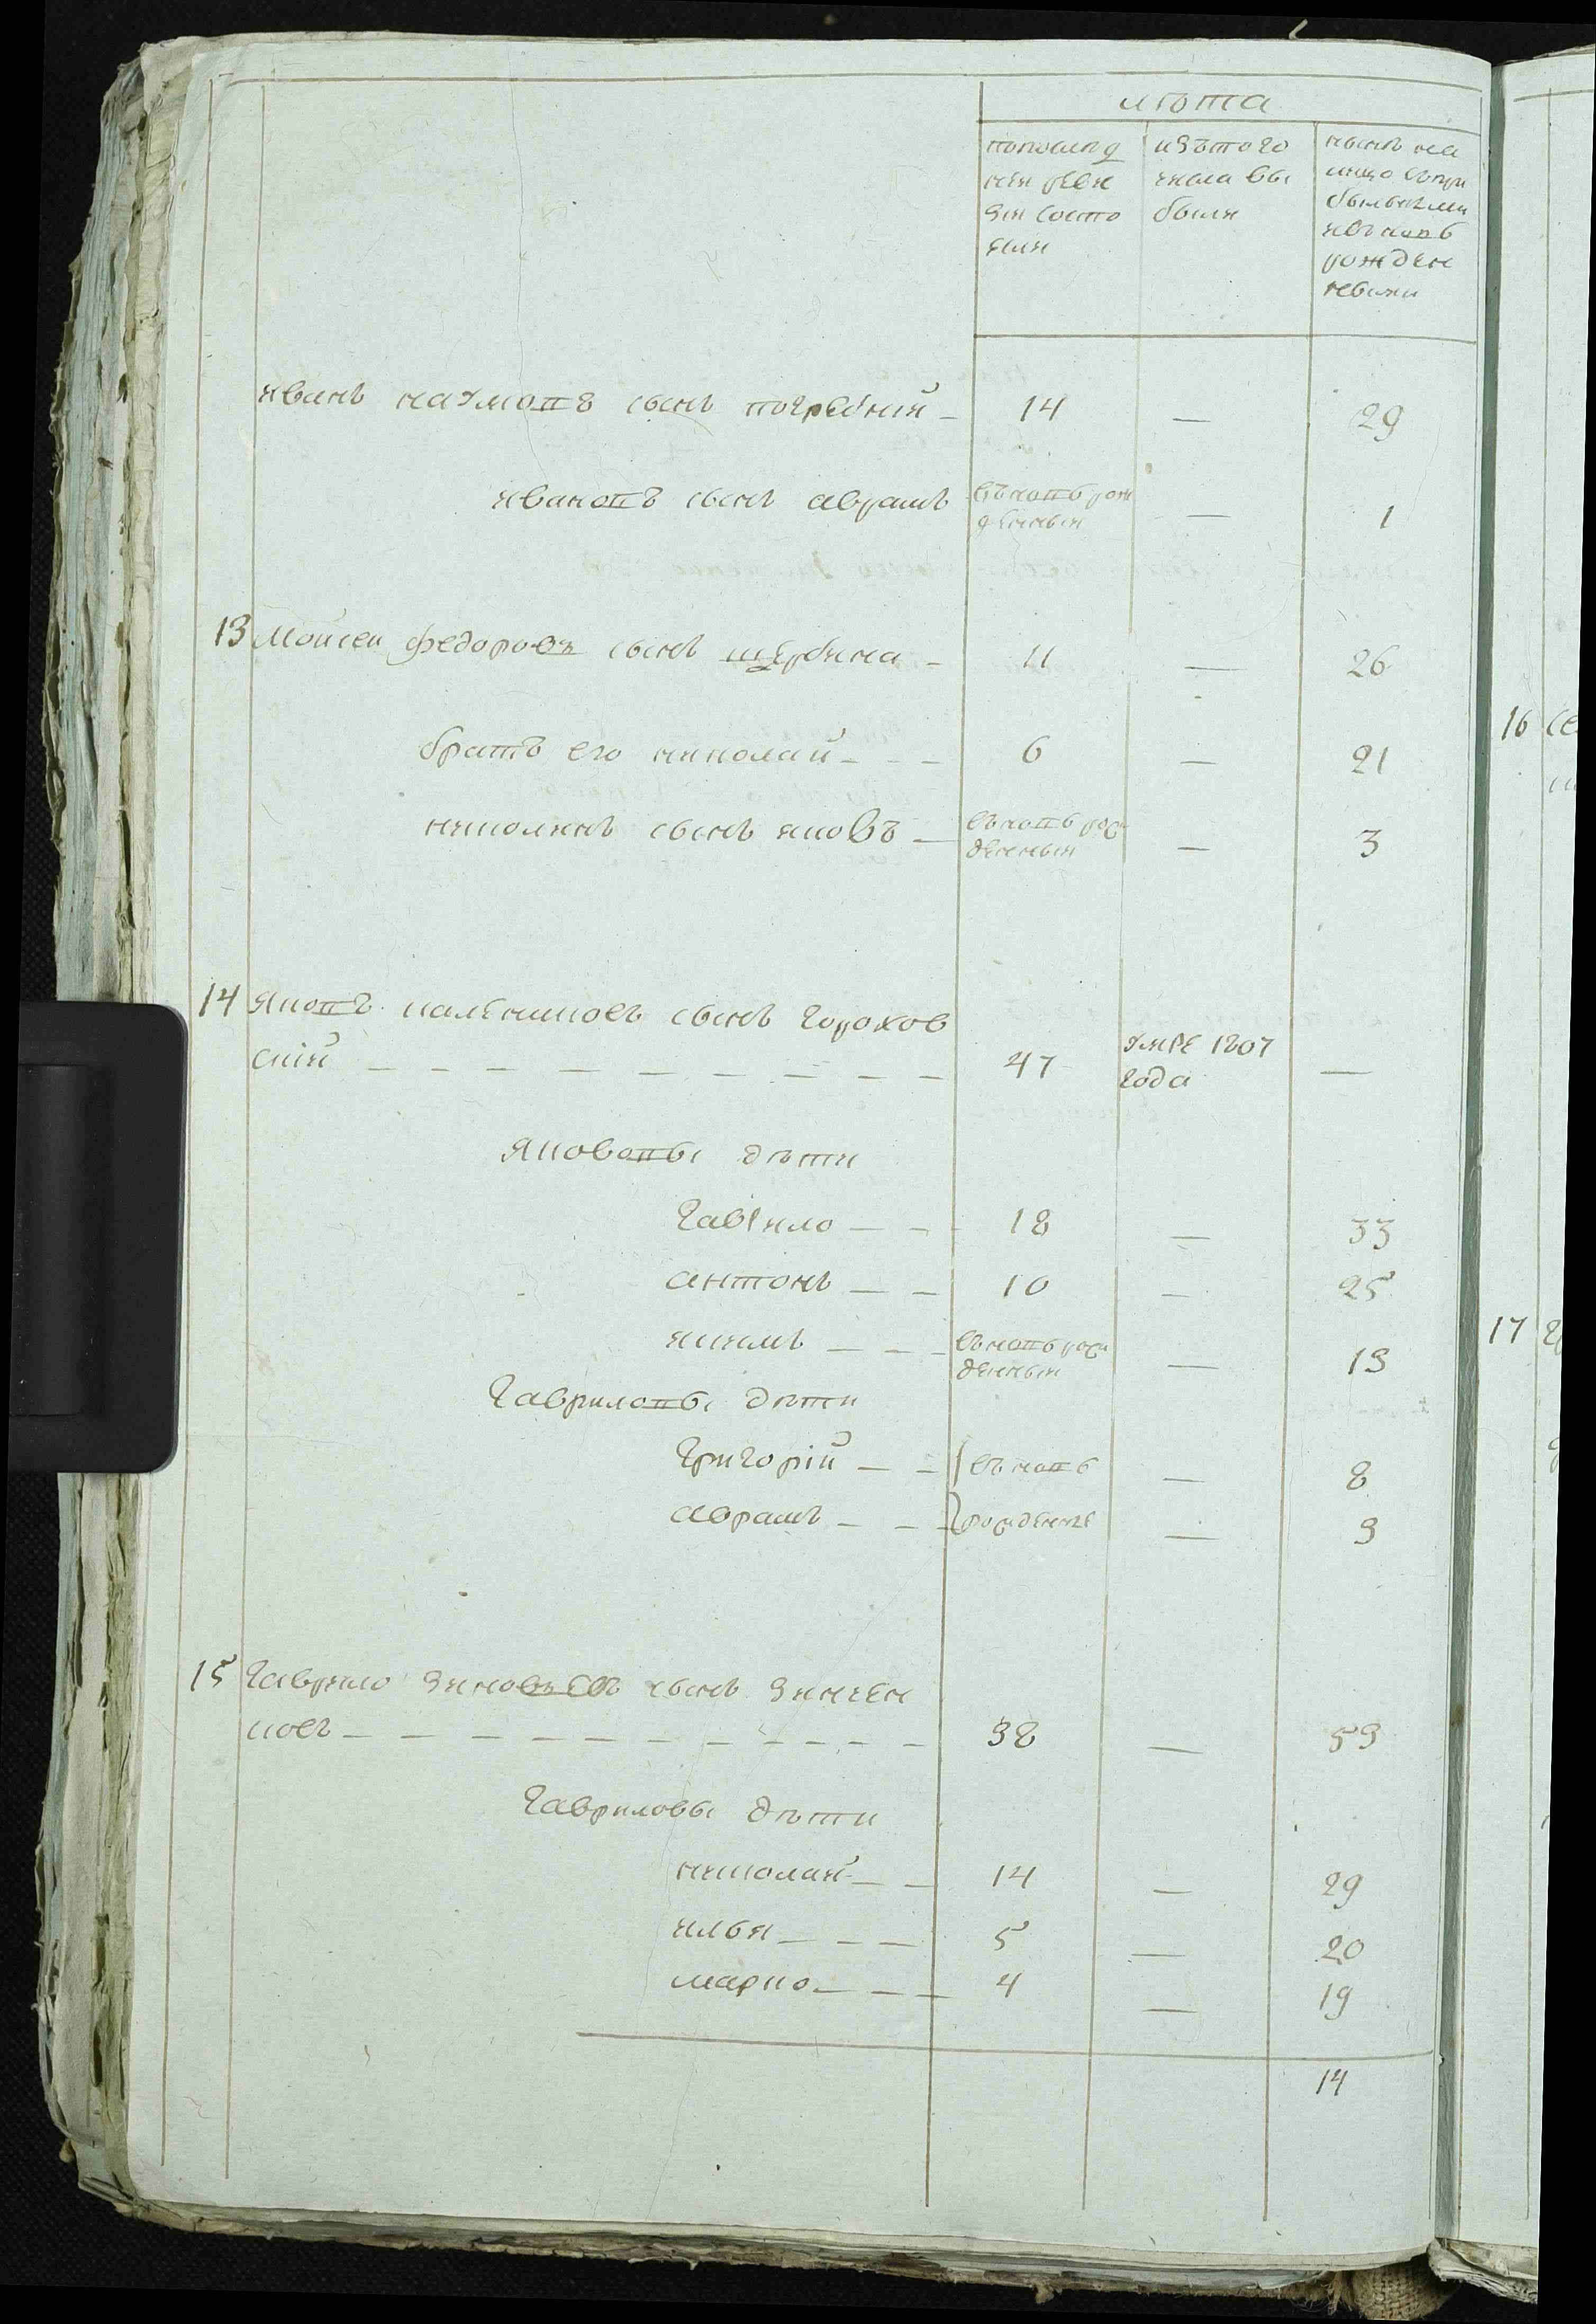 лѣта
попослед
ней реви
зіи состо
яли
изъ того
числа вы
были
нынѣ на
лицо съ при
былыми
и въ новѣ
рожден
ными
иванъ наумовъ сынъ погребній — 14 — 29
ивановъ сынъ аврамъ въ новѣ рож
денный — 1
13 Мойсеи федоровъ сынъ щербина — 11 — 26
братъ его николай — — — 6 — 21
николинъ сынъ яковъ — въ новѣ рож
денный — 3
14 Яковъ калениковъ сынъ горохов
скій — — — — — — — — — — 47 умре 1807
года —
Яковы дѣти
гаврило — — 18 — 33
антонъ — — 10 — 25
якимъ — — — въ новѣ рож
денный — 13
гавриловы дѣти
григорій — — въ новѣ — 8
аврамъ — — — рожденніе — 3
15 гаврило зиновьевъ сынъ зинчен
ковъ — — — — — — — — — — 38 — 53
гавриловы дѣти
николай — — 14 — 29
илья — — — 5 — 20
марко — — — 4 — 19
14
16
17